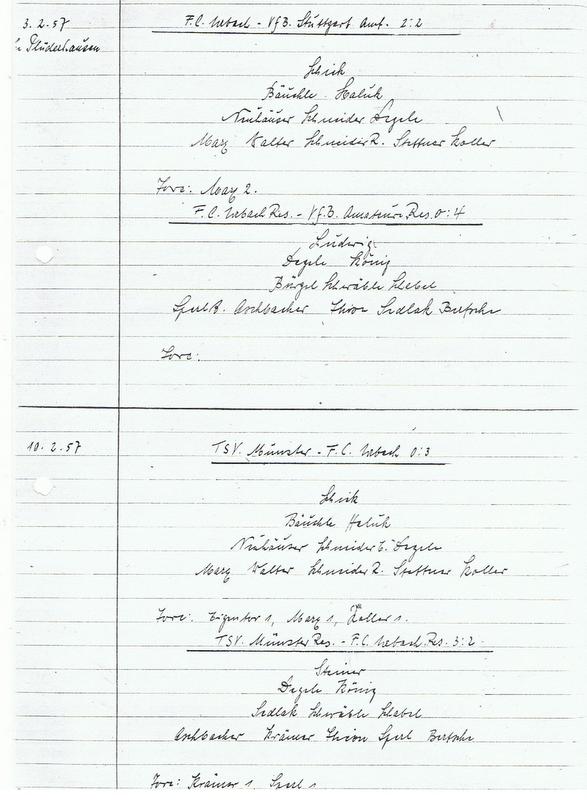 3.2.57
F.C. Urbach - VfB. Stuttgart Amt. 2:2
in Plüderhausen
Schick
Bäuchle Haluk
Neuhäuser Schneider Degele
Marz Walter Schneider R. Stettner Koller
Tore: Marz 2.
F.C. Urbach Res. - V.f.B. Amateure Res. 0:4
Ludwig
Degele König
Bürgel Schwäble Schabel
Sperl R. Aschbacher Sedlak Bertsche
Tore:
10.2.57
TSV. Münster - F.C. Urbach 0:3
Schick
Bäuchle Haluk
Neuhäuser Schneider E. Degele
Marz Walter Schneider R. Stettner Koller
Tore: Eigentor 1, Marz 1, Koller 1.
TSV. Münster Res. - F.C. Urbach Res. 3:2
Steiner
Degele König
Sedlak Schwäble Schabel
Aschbacher Krämer Sperl Bertsche
Tore: Krämer 1, Sperl 1